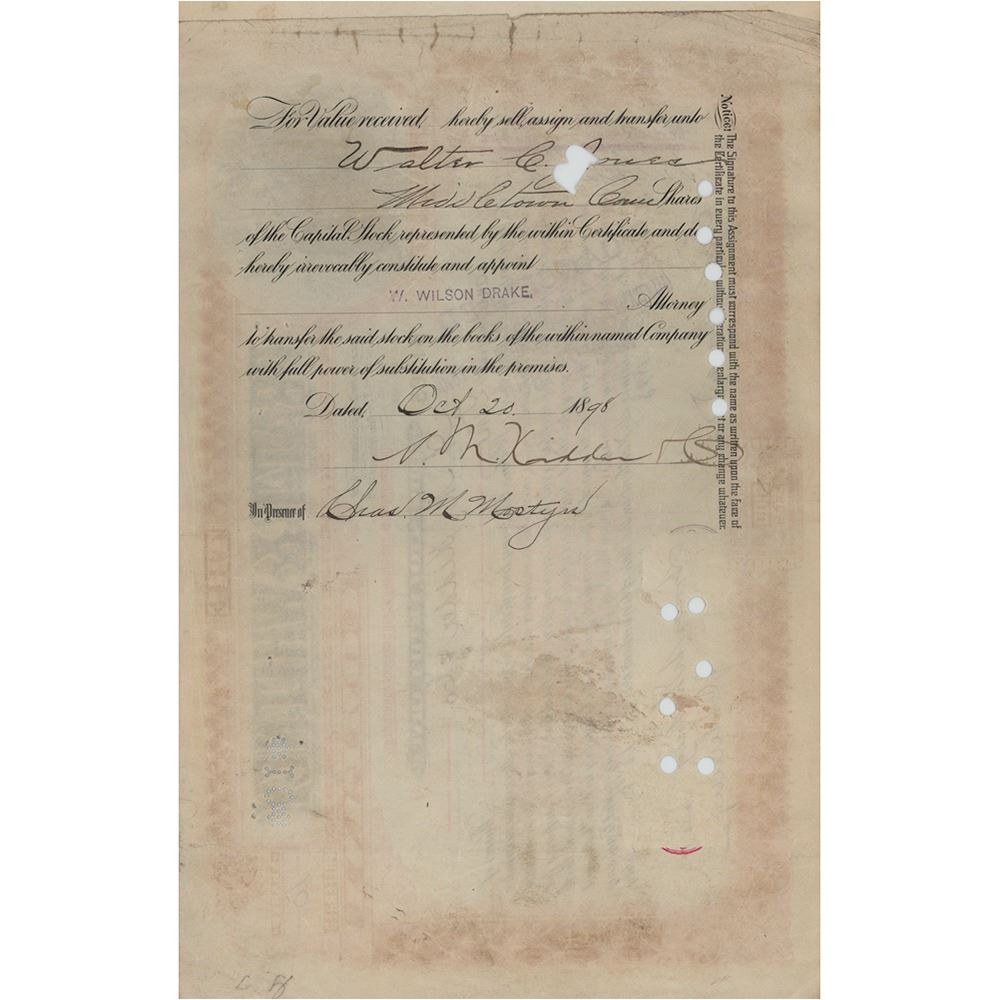 For Value received, hereby sell, assign, and transfer unto
Walter C. Jones
Middletown Conn Shares
of the Capital Stock represented by the within Certificate, and do
hereby irrevocably constitute and appoint
W. WILSON DRAKE, Attorney
to transfer the said stock on the books of the within named Company
with full power of substitution in the premises.
Dated, Oct 20. 1898
M. Kidder & Co
In Presence of Chas. M Mostyn
Notice: The Signature to this Assignment must correspond with the name as written upon the face of
the Certificate in every particular without alteration enlargement or any change whatever.